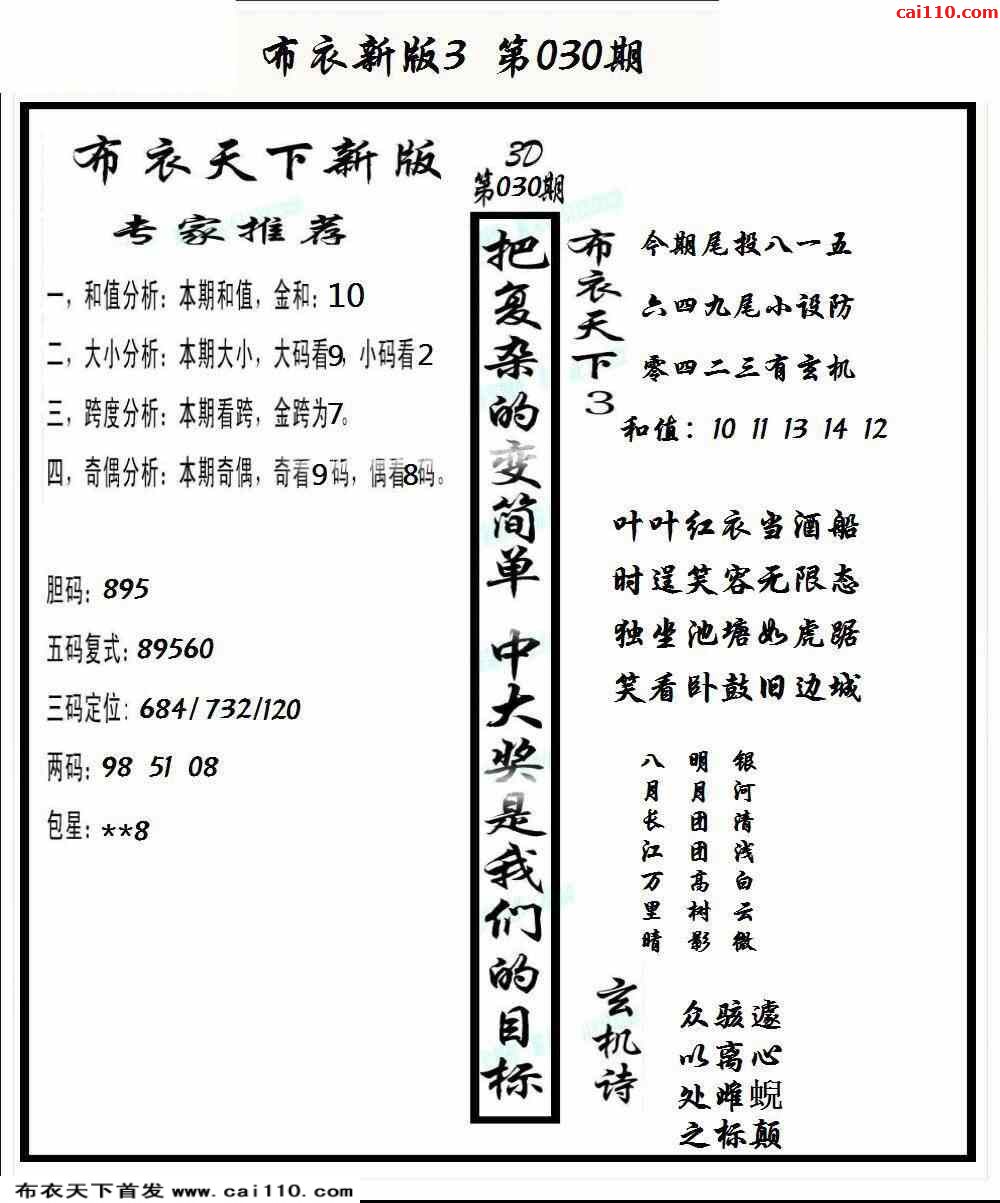 cai110.com
布衣新版3 第030期
布衣天下新版
专家推荐
一，和值分析：本期和值，金和：10
二，大小分析：本期大小，大码看9，小码看2
三，跨度分析：本期看跨，金跨为7。
四，奇偶分析：本期奇偶，奇看9码，偶看8码。
胆码：895
五码复式：89560
三码定位：684/732/120
两码：98 51 08
包星：**8
3D
第030期
把复杂的变简单 中大奖是我们的目标
布衣天下3
今期尾投八一五
六四九尾小设防
零四二三有玄机
和值：10 11 13 14 12
叶叶红衣当酒船
时逞笑容无限态
独坐池塘如虎踞
笑看卧鼓旧边城
八月长江万里晴
明月团团高树影
银河清浅白云微
玄机诗
众骇遽
以离心
处难蜺
之标颠
布衣天下首发 www.cai110.com